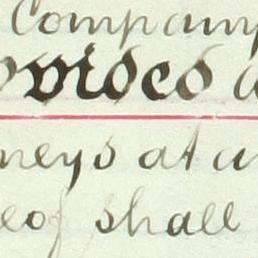 Company
ovided a
neys at a
eof shall